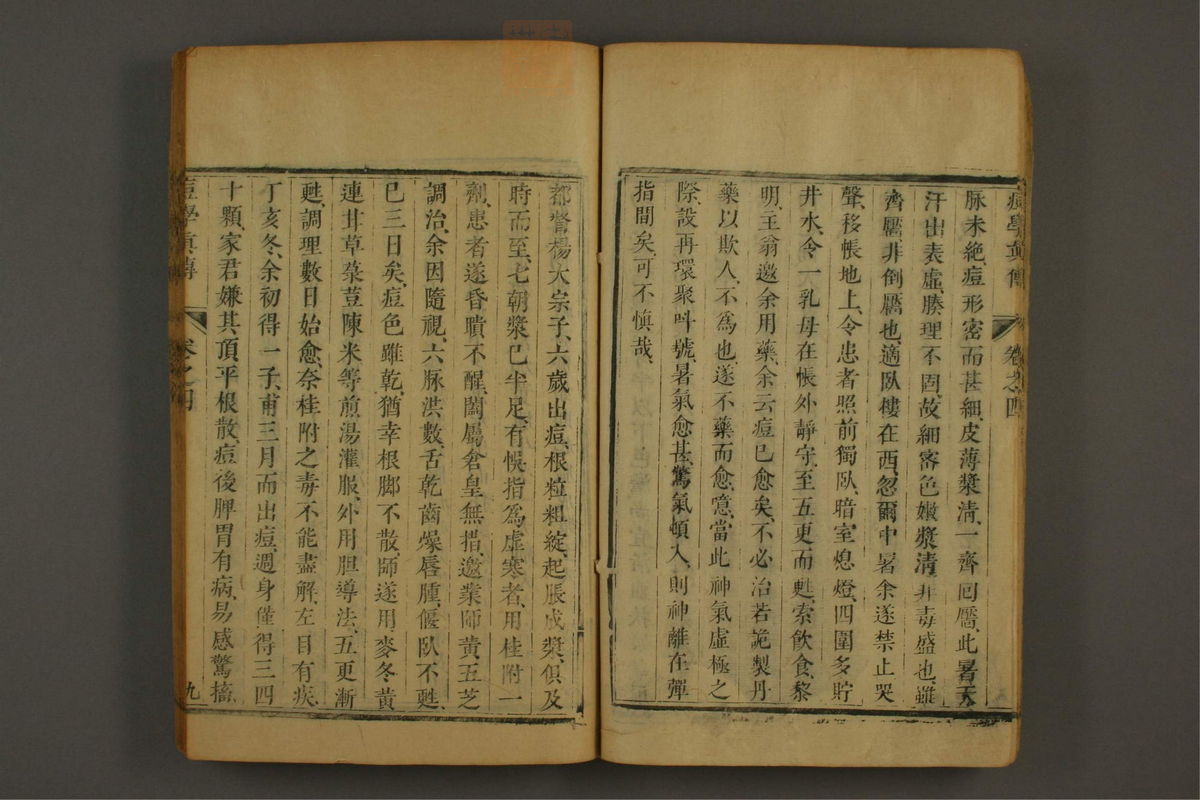 痘學真傳 卷之四
脉未絶痘形密而甚細皮薄漿清一齊回靨此暑天
汗出表虛腠理不固故細密色嫩漿清非毒盛也雖
齊靨非倒靨也適臥樓在西忽爾中暑余遂禁止哭
聲移帳地上令患者照前獨臥暗室熄燈四圍多貯
井水令一乳母在帳外靜守至五更而甦索飲食黎
明主翁邀余用藥余云痘已愈矣不必治若詭製丹
藥以欺人不爲也遂不藥而愈噫當此神氣虛極之
際設再環聚呌號暑氣愈甚驚氣頓入則神離在彈
指間矣可不愼哉
都督楊大宗子六歲出痘根粒粗綻起脹成漿俱及
時而至七朝漿已半足有悞指爲虛寒者用桂附一
劑患者遂昏聵不醒闔屬倉皇無措邀業師黃五芝
調治余因隨視六脉洪數舌乾齒燥唇腫偃臥不甦
已三日矣痘色雖乾猶幸根脚不散師遂用麥冬黃
連甘草菉荳陳米等煎湯灌服外用胆導法五更漸
甦調理數日始愈奈桂附之毒不能盡解左目有疾
丁亥冬余初得一子甫三月而出痘週身僅得三四
十顆家君嫌其頂平根散痘後脾胃有病易感驚搐
痘學眞傳 卷之四 九